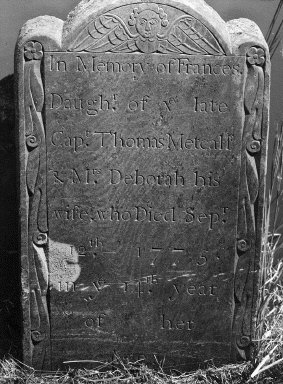 In Memory of Frances
Daughr. of ye late
Capt. Thomas Metcalf
& Mrs. Deborah his
wife, who Died Sepr.
th 1775
in ye 14th year
of her